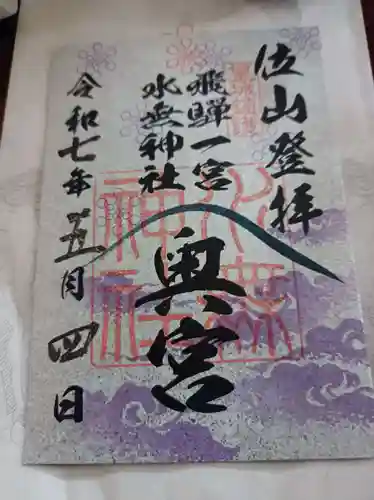 位山登拝
飛騨一宮
水無神社
奥宮
令和七年五月四日
水無神社